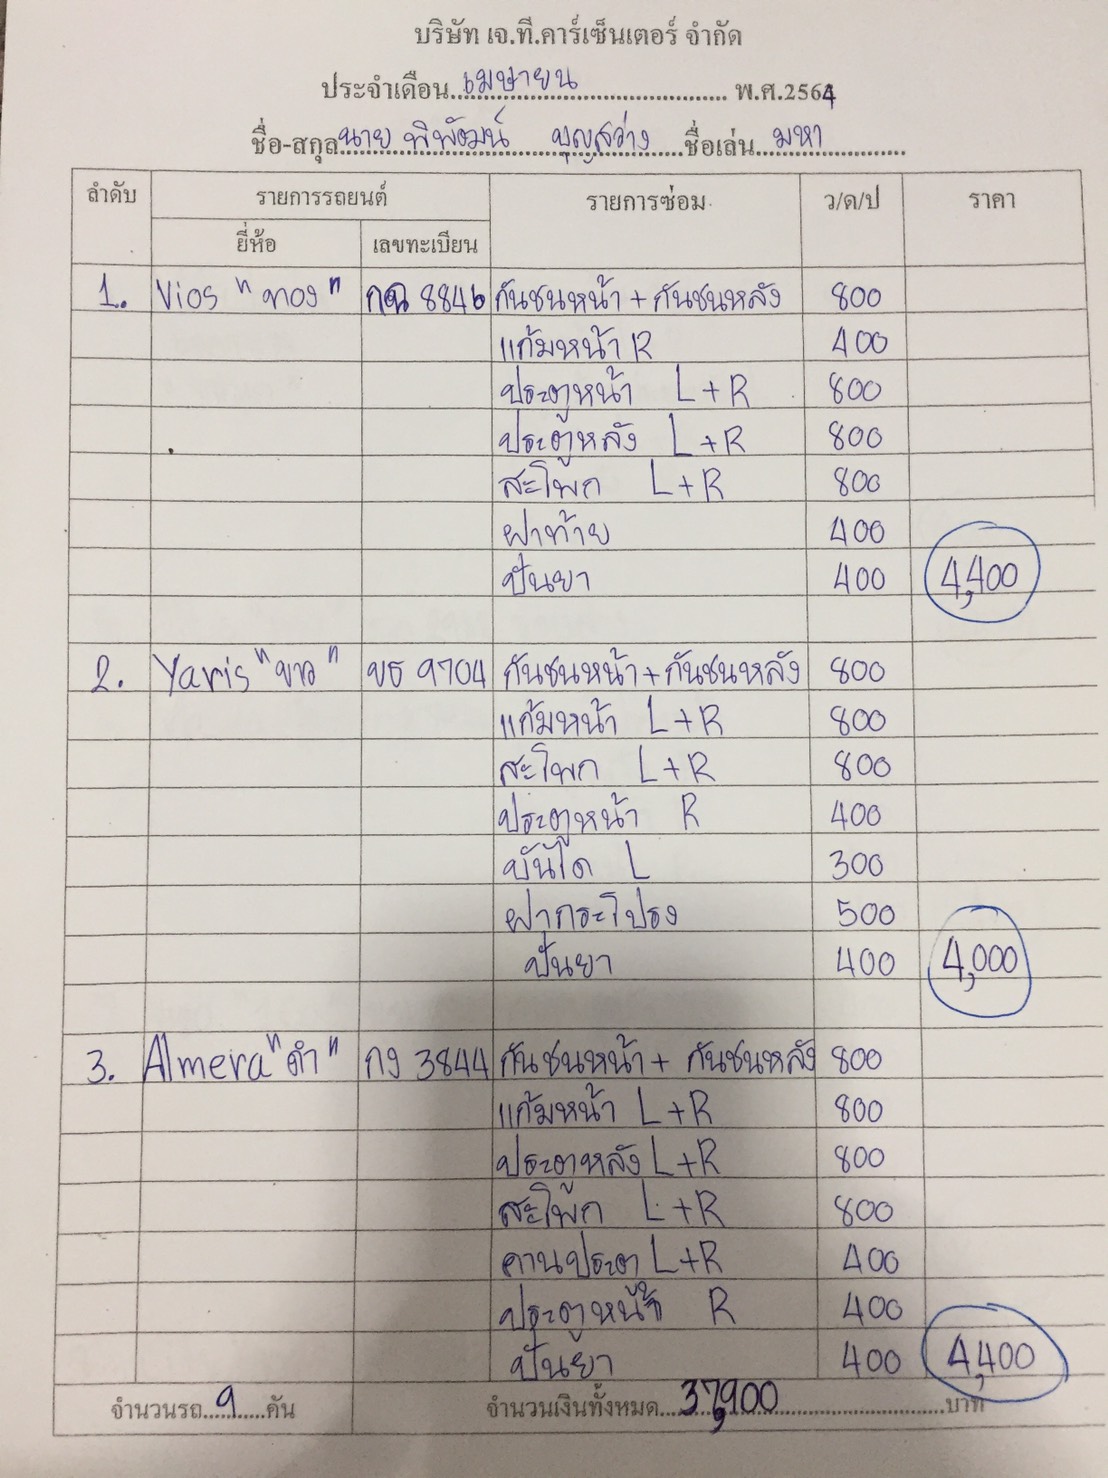 บริษัท เจ.ที.คาร์เซ็นเตอร์ จำกัด
ประจำเดือน เมษายน พ.ศ.2564
ชื่อ-สกุล นาย พิพัฒน์ บุญสว่าง ชื่อเล่น มหา
ลำดับ รายการรถยนต์ รายการซ่อม ว/ด/ป ราคา
ยี่ห้อ เลขทะเบียน
1. Vios "ทอง" กฉ 8846 กันชนหน้า + กันชนหลัง 800
แก้มหน้า R 400
ประตูหน้า L+R 800
ประตูหลัง L+R 800
สะโพก L+R 800
ฝาท้าย 400
ปั่นยา 400 4,400
2. Yaris "ขาว" ขธ 9704 กันชนหน้า+กันชนหลัง 800
แก้มหน้า L+R 800
สะโพก L+R 800
ประตูหน้า R 400
บันได L 300
ฝากระโปรง 500
ปั่นยา 400 4,000
3. Almera "ดำ" กง 3844 กันชนหน้า + กันชนหลัง 800
แก้มหน้า L+R 800
ประตูหลัง L+R 800
สะโพก L+R 800
คานประตู L+R 400
ประตูหน้า R 400
ปั่นยา 400 4,400
จำนวนรถ 9 คัน จำนวนเงินทั้งหมด 37,900 บาท